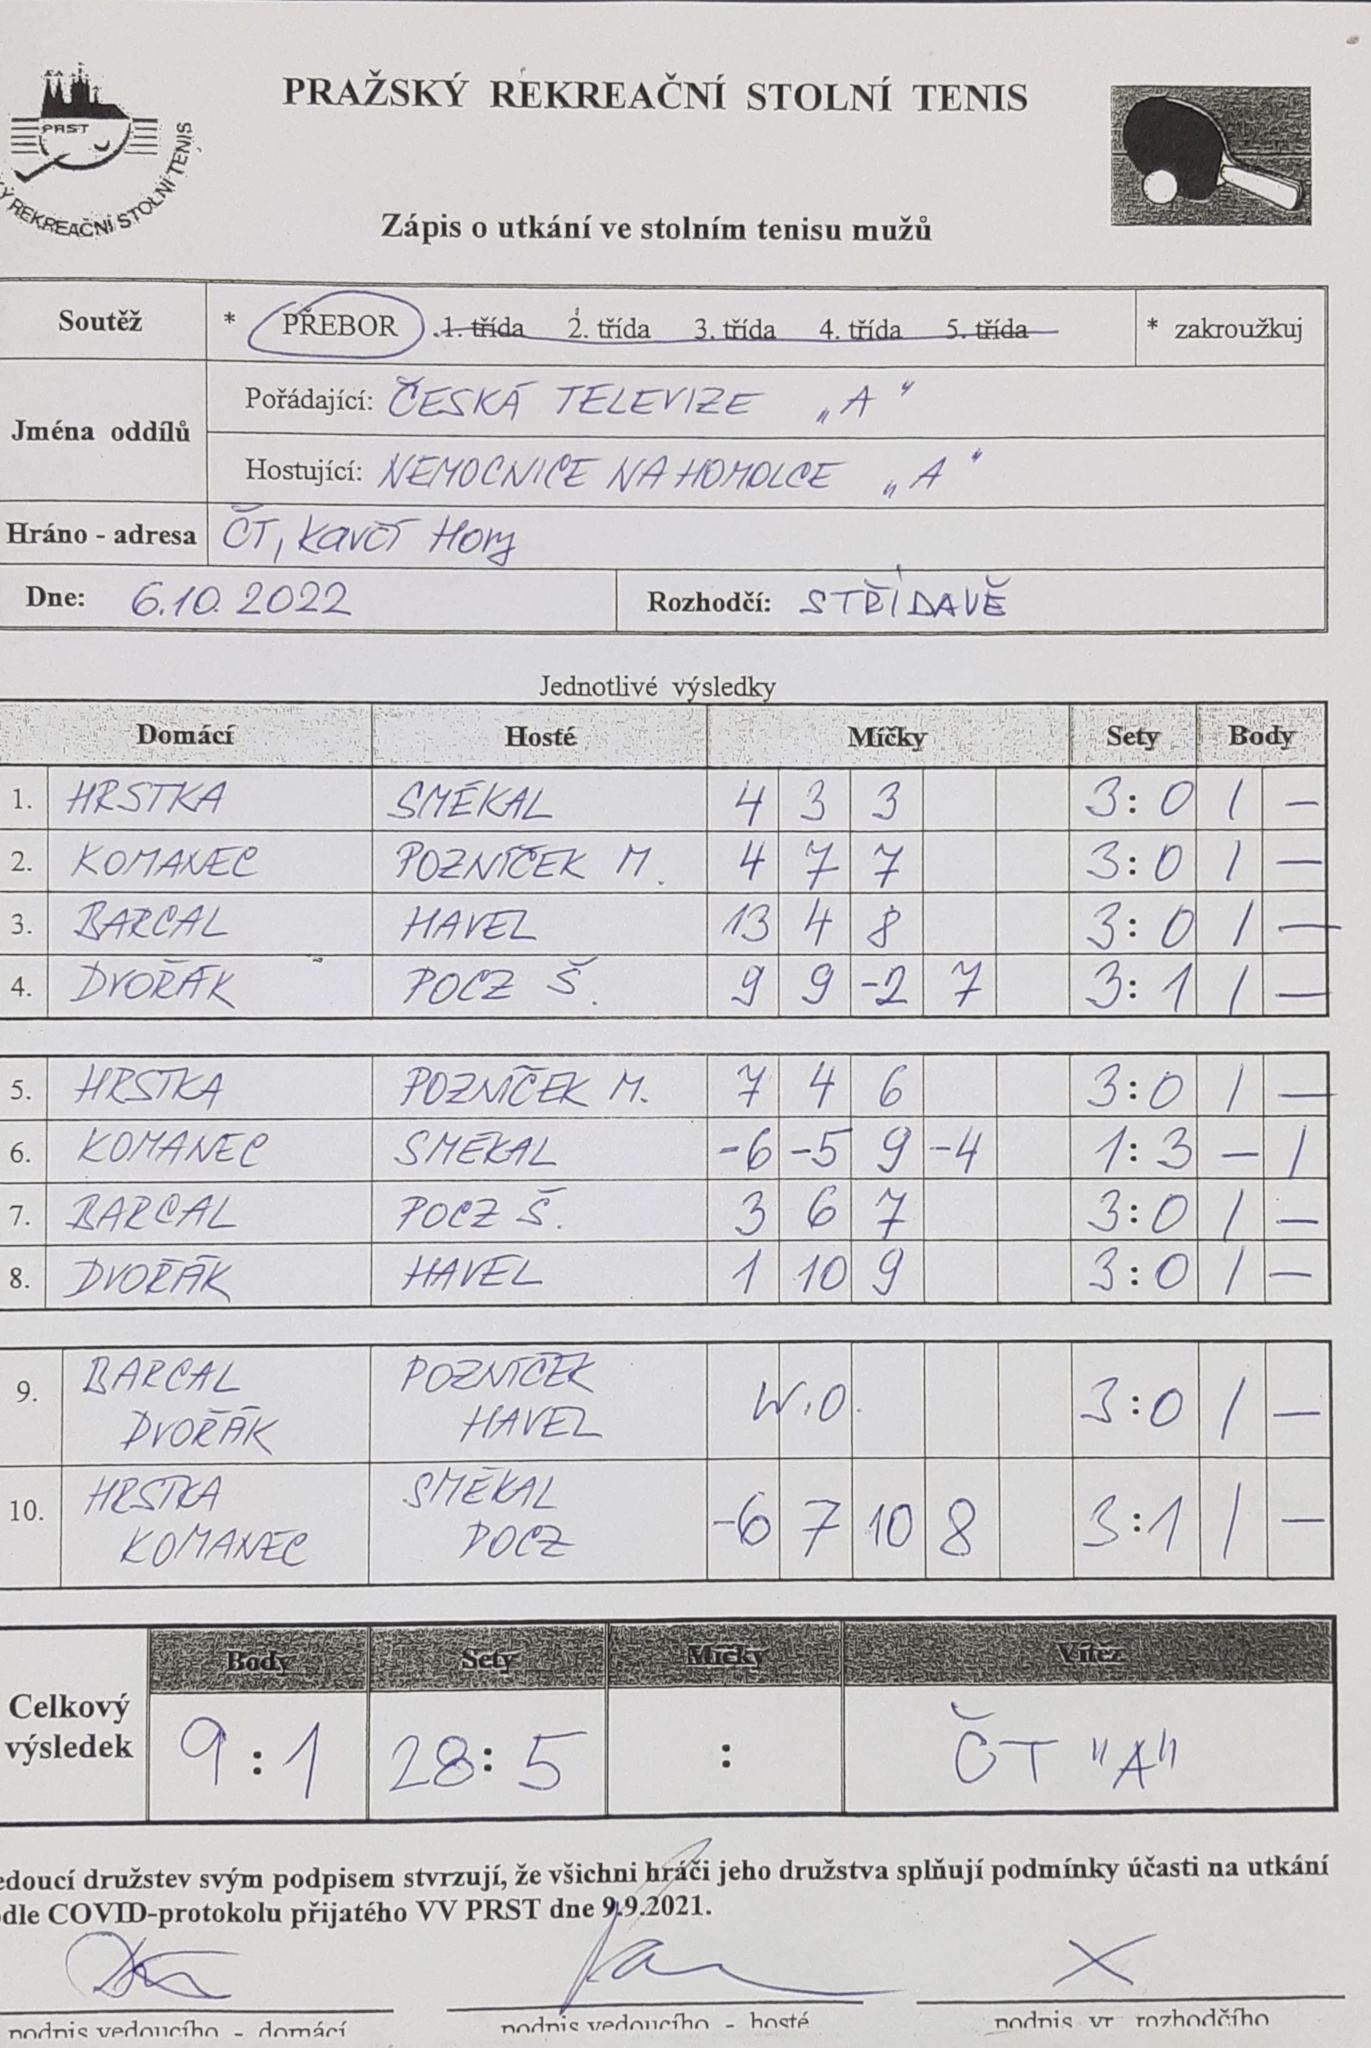 PRAŽSKÝ REKREAČNÍ STOLNÍ TENIS
PRST
REKREAČNÍ STOLNÍ TENIS
Zápis o utkání ve stolním tenisu mužů
Soutěž * PŘEBOR 1. třída 2. třída 3. třída 4. třída 5. třída * zakroužkuj
Jména oddílů
Pořádající: ČESKÁ TELEVIZE „A"
Hostující: NEMOCNICE NA HOMOLCE „A"
Hráno - adresa ČT, Kavčí Hory
Dne: 6.10.2022 Rozhodčí: STŘÍDAVĚ
Jednotlivé výsledky
Domácí Hosté Míčky Sety Body
1. HRSTKA SMÉKAL 4 3 3 3:0 1 —
2. KOMANEC POZNÍČEK M. 4 7 7 3:0 1 —
3. BARCAL HAVEL 13 4 8 3:0 1 —
4. DVOŘÁK POCZ Š. 9 9 -2 7 3:1 1 —
5. HRSTKA POZNÍČEK M. 7 4 6 3:0 1 —
6. KOMANEC SMÉKAL -6 -5 9 -4 1:3 — 1
7. BARCAL POCZ Š. 3 6 7 3:0 1 —
8. DVOŘÁK HAVEL 1 10 9 3:0 1 —
9. BARCAL POZNÍČEK W.O. 3:0 1 —
DVOŘÁK HAVEL
10. HRSTKA SMÉKAL -6 7 10 8 3:1 1 —
KOMANEC POCZ
Body Sety Míčky Vítěz
Celkový výsledek 9:1 28:5 : ČT "A"
edoucí družstev svým podpisem stvrzují, že všichni hráči jeho družstva splňují podmínky účasti na utkání
dle COVID-protokolu přijatého VV PRST dne 9.9.2021.
X
podpis vedoucího - domácí podpis vedoucího - hosté podpis vr. rozhodčího